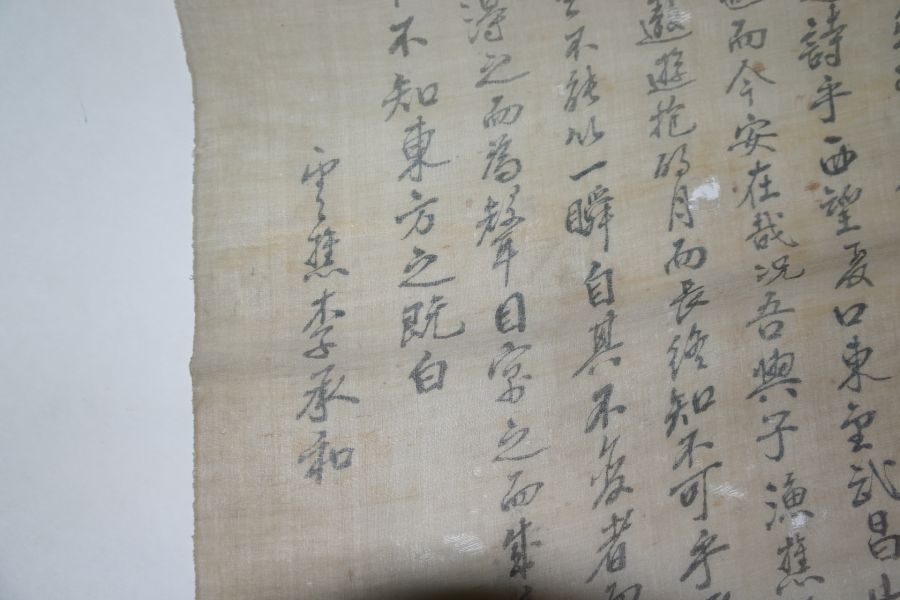 詩乎西望夏口東望武昌
而今安在哉況吾與子漁樵
遨遊抱明月而長終知不可乎
不能以一瞬自其不變者而
得之而為聲目寓之而成
不知東方之既白
雲樵李承和